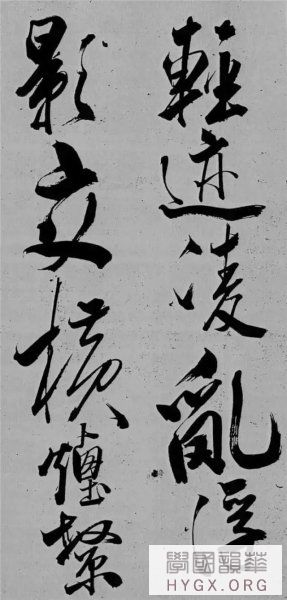 輕迹凌亂浮
影交橫
學國韻華
HYGX.ORG